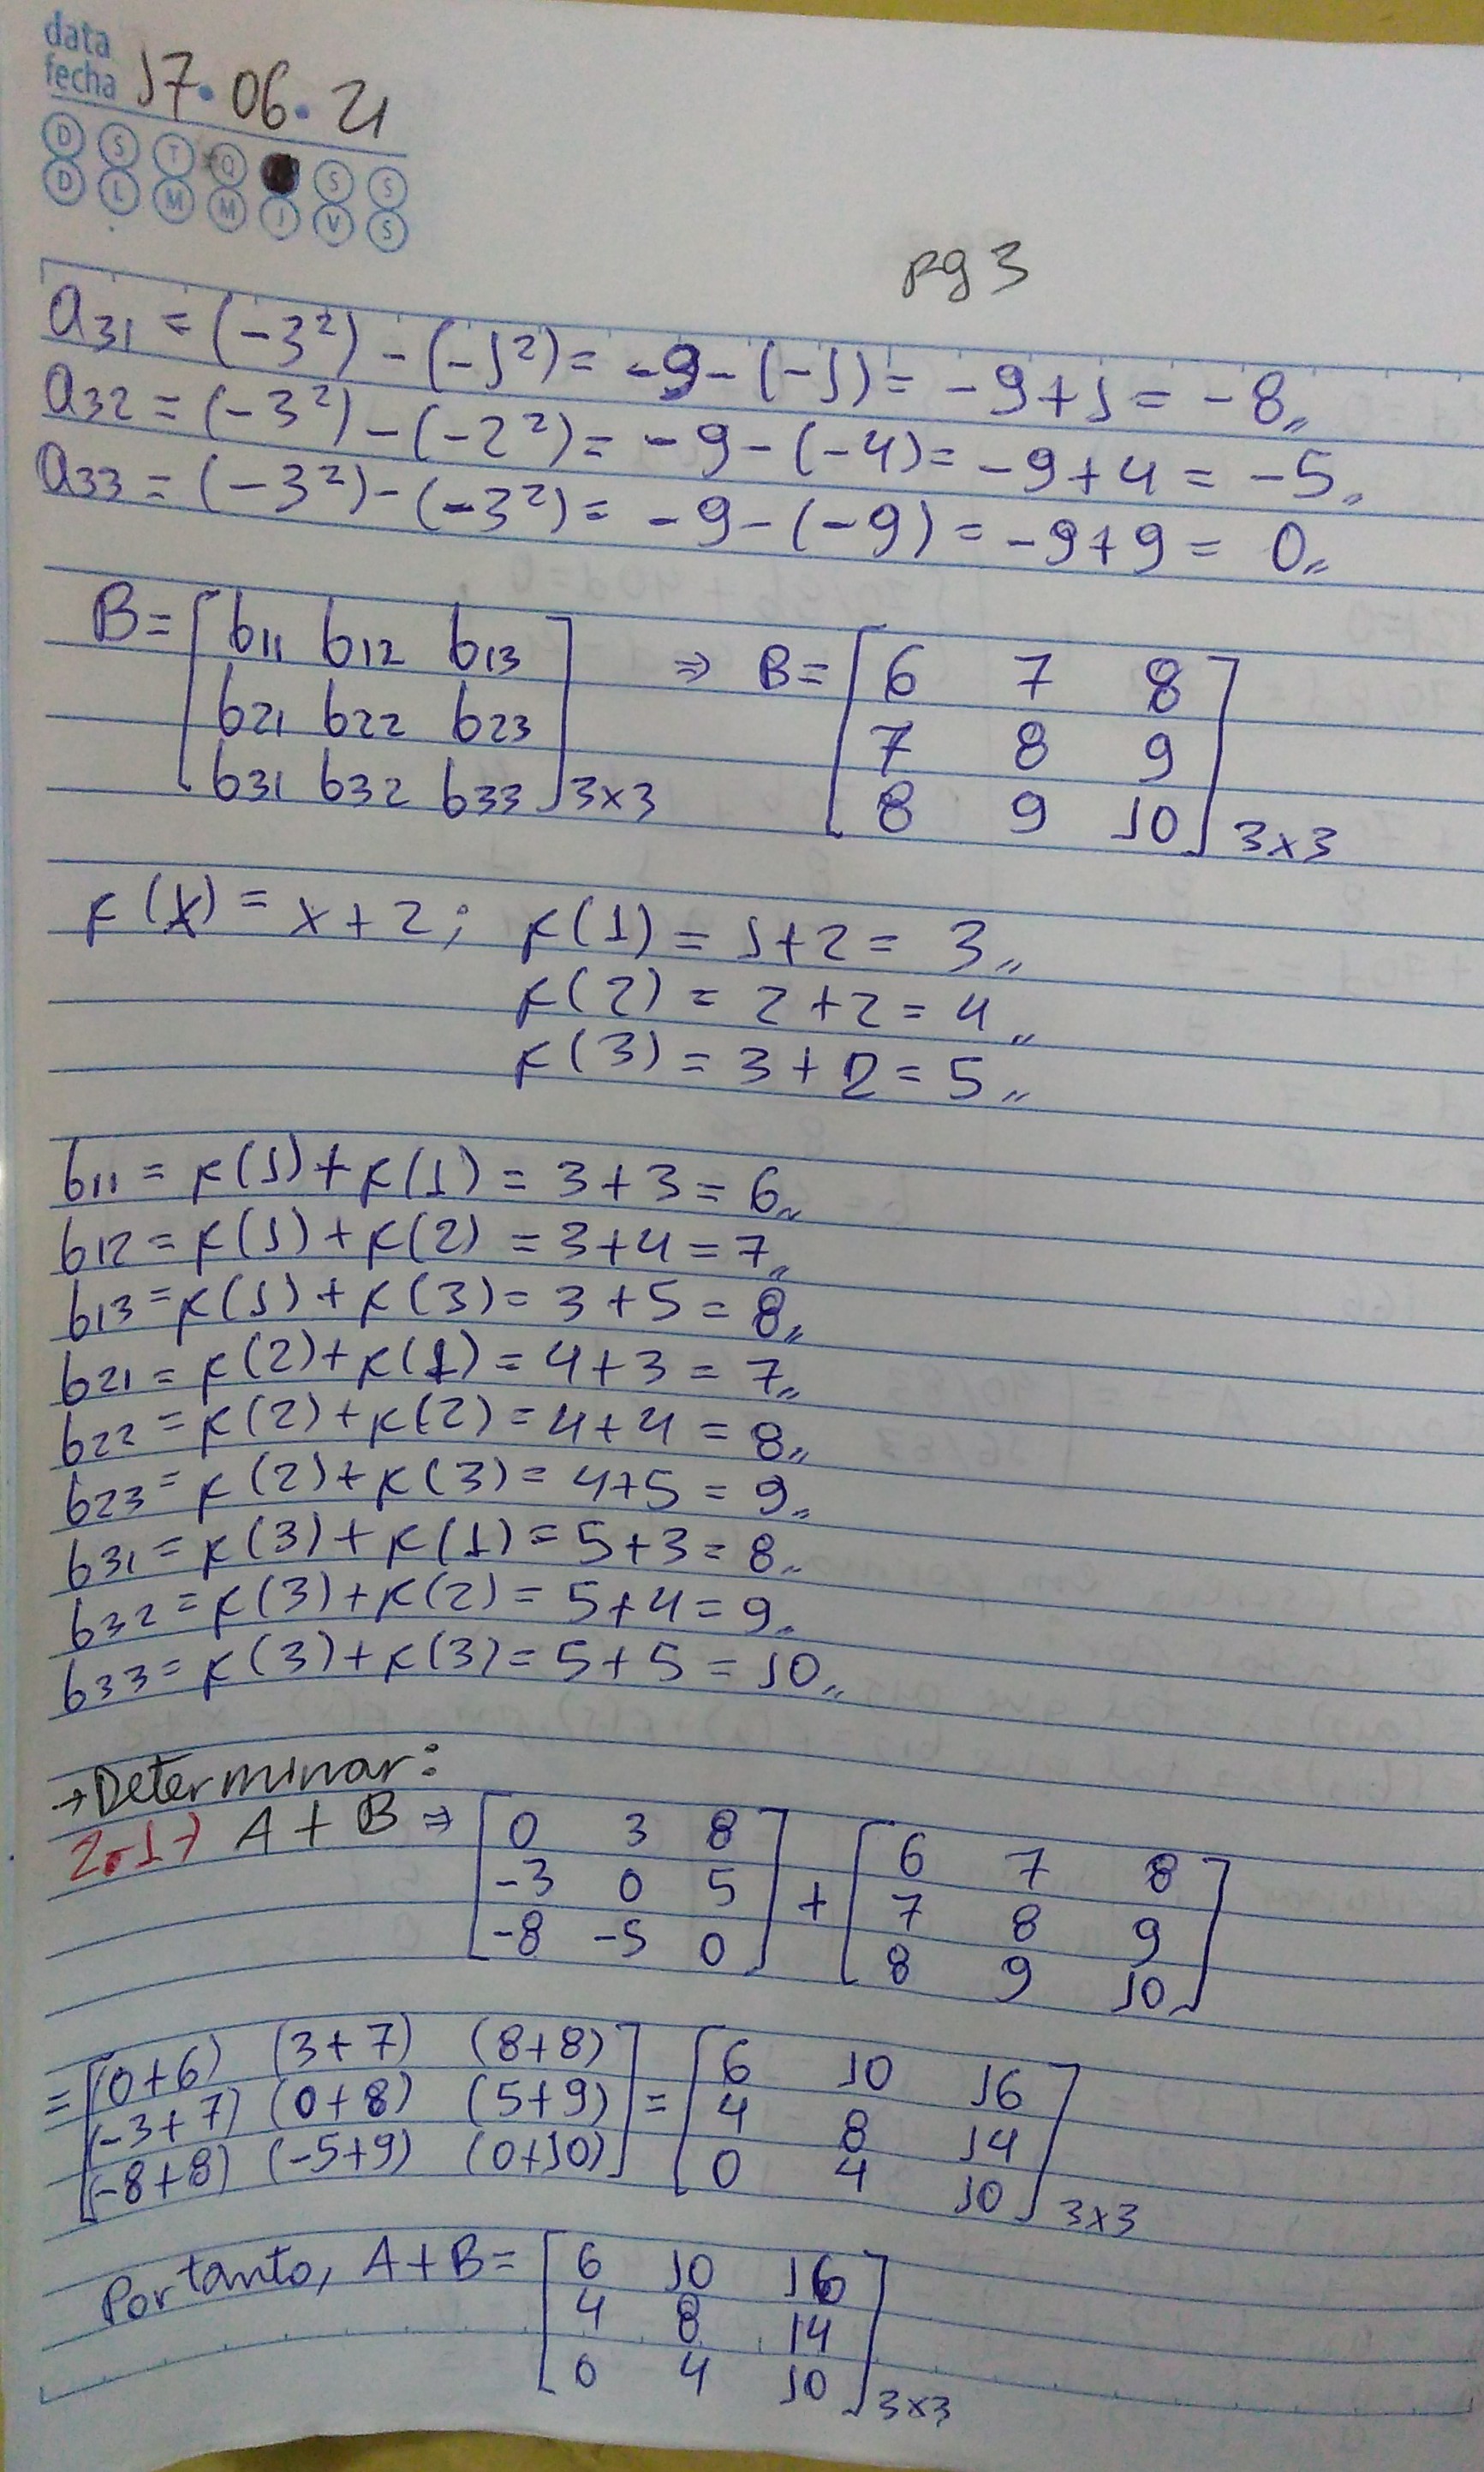 data
fecha 17.06.21
D S T Q S S
D L M M J V S
pg 3
a31 = (-3²) - (-1²) = -9 - (-1) = -9 + 1 = -8,,
a32 = (-3²) - (-2²) = -9 - (-4) = -9 + 4 = -5,,
a33 = (-3²) - (-3²) = -9 - (-9) = -9 + 9 = 0,,
B = [b11 b12 b13 ⇒ B = [6 7 8
b21 b22 b23 7 8 9
b31 b32 b33]3x3 8 9 10]3x3
f(x) = x + 2; f(1) = 1 + 2 = 3,,
f(2) = 2 + 2 = 4,,
f(3) = 3 + 2 = 5,,
b11 = f(1) + f(1) = 3 + 3 = 6,,
b12 = f(1) + f(2) = 3 + 4 = 7,,
b13 = f(1) + f(3) = 3 + 5 = 8,,
b21 = f(2) + f(1) = 4 + 3 = 7,,
b22 = f(2) + f(2) = 4 + 4 = 8,,
b23 = f(2) + f(3) = 4 + 5 = 9,,
b31 = f(3) + f(1) = 5 + 3 = 8,,
b32 = f(3) + f(2) = 5 + 4 = 9,,
b33 = f(3) + f(3) = 5 + 5 = 10,,
→ Determinar:
2.1) A + B ⇒ [0 3 8 + [6 7 8
-3 0 5 7 8 9
-8 -5 0] 8 9 10]
= [(0+6) (3+7) (8+8) = [6 10 16
(-3+7) (0+8) (5+9) 4 8 14
(-8+8) (-5+9) (0+10)] 0 4 10]3x3
Portanto, A + B = [6 10 16
4 8 14
0 4 10]3x3